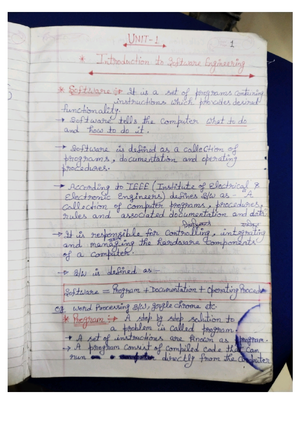 UNIT-1
1
* Introduction to Software Engineering
* Software :- It is a set of programs containing
instructions which provides desired
functionality.
→ Software tells the computer what to do
and how to do it.
→ Software is defined as a collection of
programs, documentation and operating
procedures.
→ According to IEEE (Institute of Electrical &
Electronic Engineers) defines S/w as - "a
collection of computer programs, procedures,
rules and associated documentation and data
→ It is responsible for controlling, integrating
and managing the hardware components
of a computer.
→ S/w is defined as :-
Software = Program + Documentation + Operating Procedures
word Processing S/w, google chrome etc
* Program :- A step by step solution to
a problem is called program.
→ A set of instructions are known as program.
→ A program consist of compiled code that can
run directly from the computer